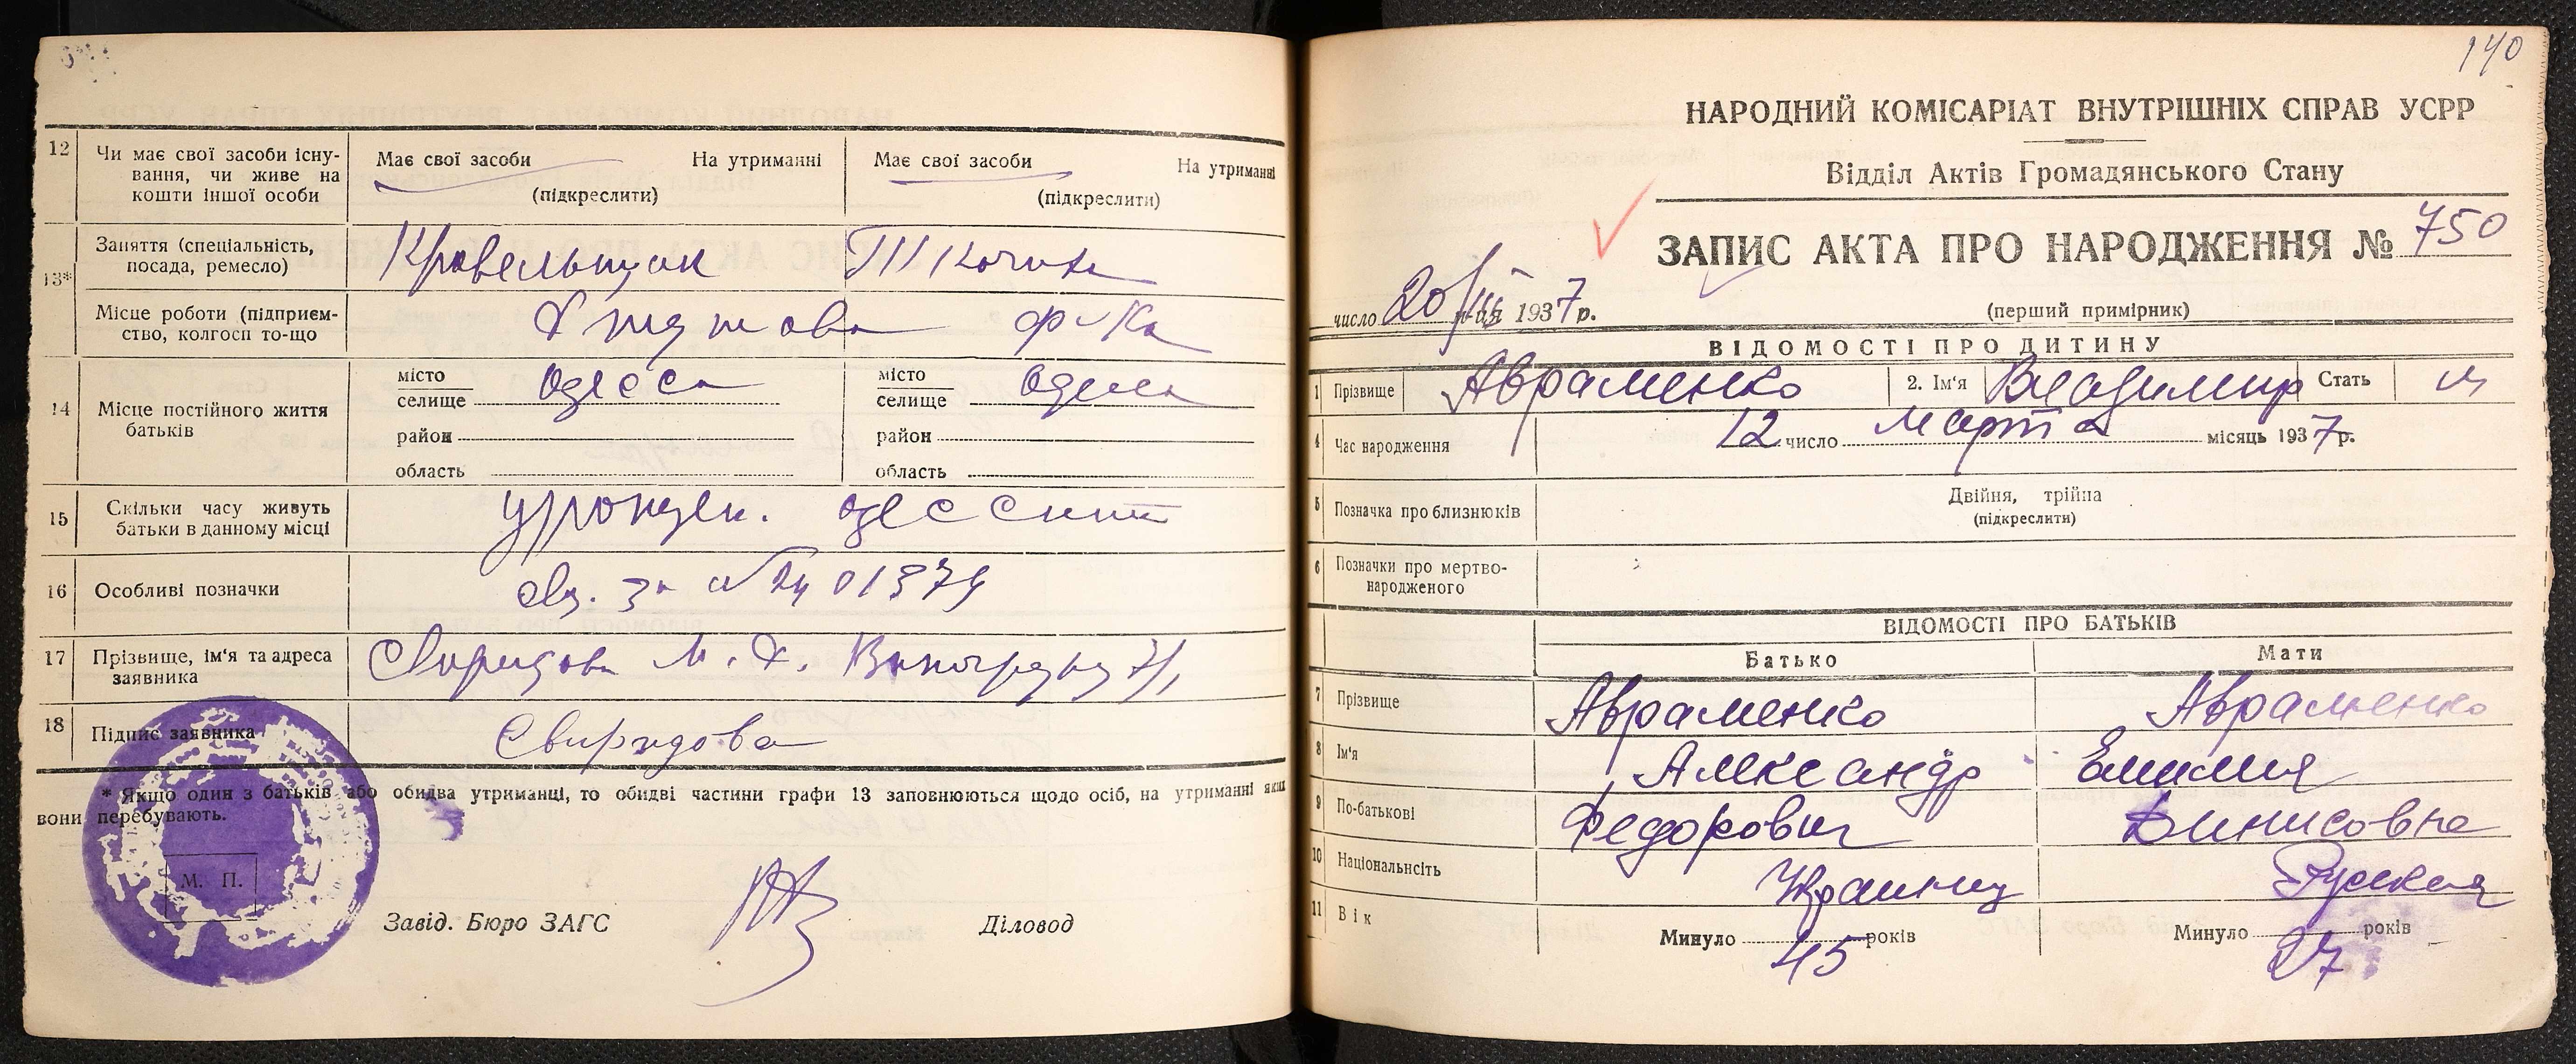 12 Чи має свої засоби існу-вання, чи живе на кошти іншої особи
Має свої засоби На утриманні (підкреслити)
Має свої засоби На утриманні (підкреслити)
13* Заняття (спеціальність, посада, ремесло)
Кровельщик Ткачиха
Місце роботи (підприєм-ство, колгосп то-що)
ф-ка
14 Місце постійного життя батьків
місто селище Одесса
район
область
місто селище Одесса
район
область
15 Скільки часу живуть батьки в данному місці
урожден. одесситы
16 Особливі позначки
01379
17 Прізвище, ім'я та адреса заявника
Свиридова М. Ф.
18 Підпис заявника
Свиридова
* Якщо один з батьків або обидва утриманці, то обидві частини графи 13 заповнюються щодо осіб, на утриманні яких
вони перебувають.
М. П.
Завід. Бюро ЗАГС Діловод
140
НАРОДНИЙ КОМІСАРІАТ ВНУТРІШНІХ СПРАВ УСРР
Відділ Актів Громадянського Стану
ЗАПИС АКТА ПРО НАРОДЖЕННЯ № 750
число 20/III м-ця 1937 р.
(перший примірник)
ВІДОМОСТІ ПРО ДИТИНУ
1 Прізвище Авраменко 2. Ім'я Владимир Стать м
4 Час народження 12 число марта місяць 1937 р.
5 Позначка про близнюків
Двійня, трійпа
(підкреслити)
6 Позначки про мертво-народженого
ВІДОМОСТІ ПРО БАТЬКІВ
Батько Мати
7 Прізвище Авраменко Авраменко
8 Ім'я Александр Емилия
9 По-батькові Федорович Динисовна
10 Національнсіть Украинец Русская
11 Вік Минуло 45 років Минуло 27 років